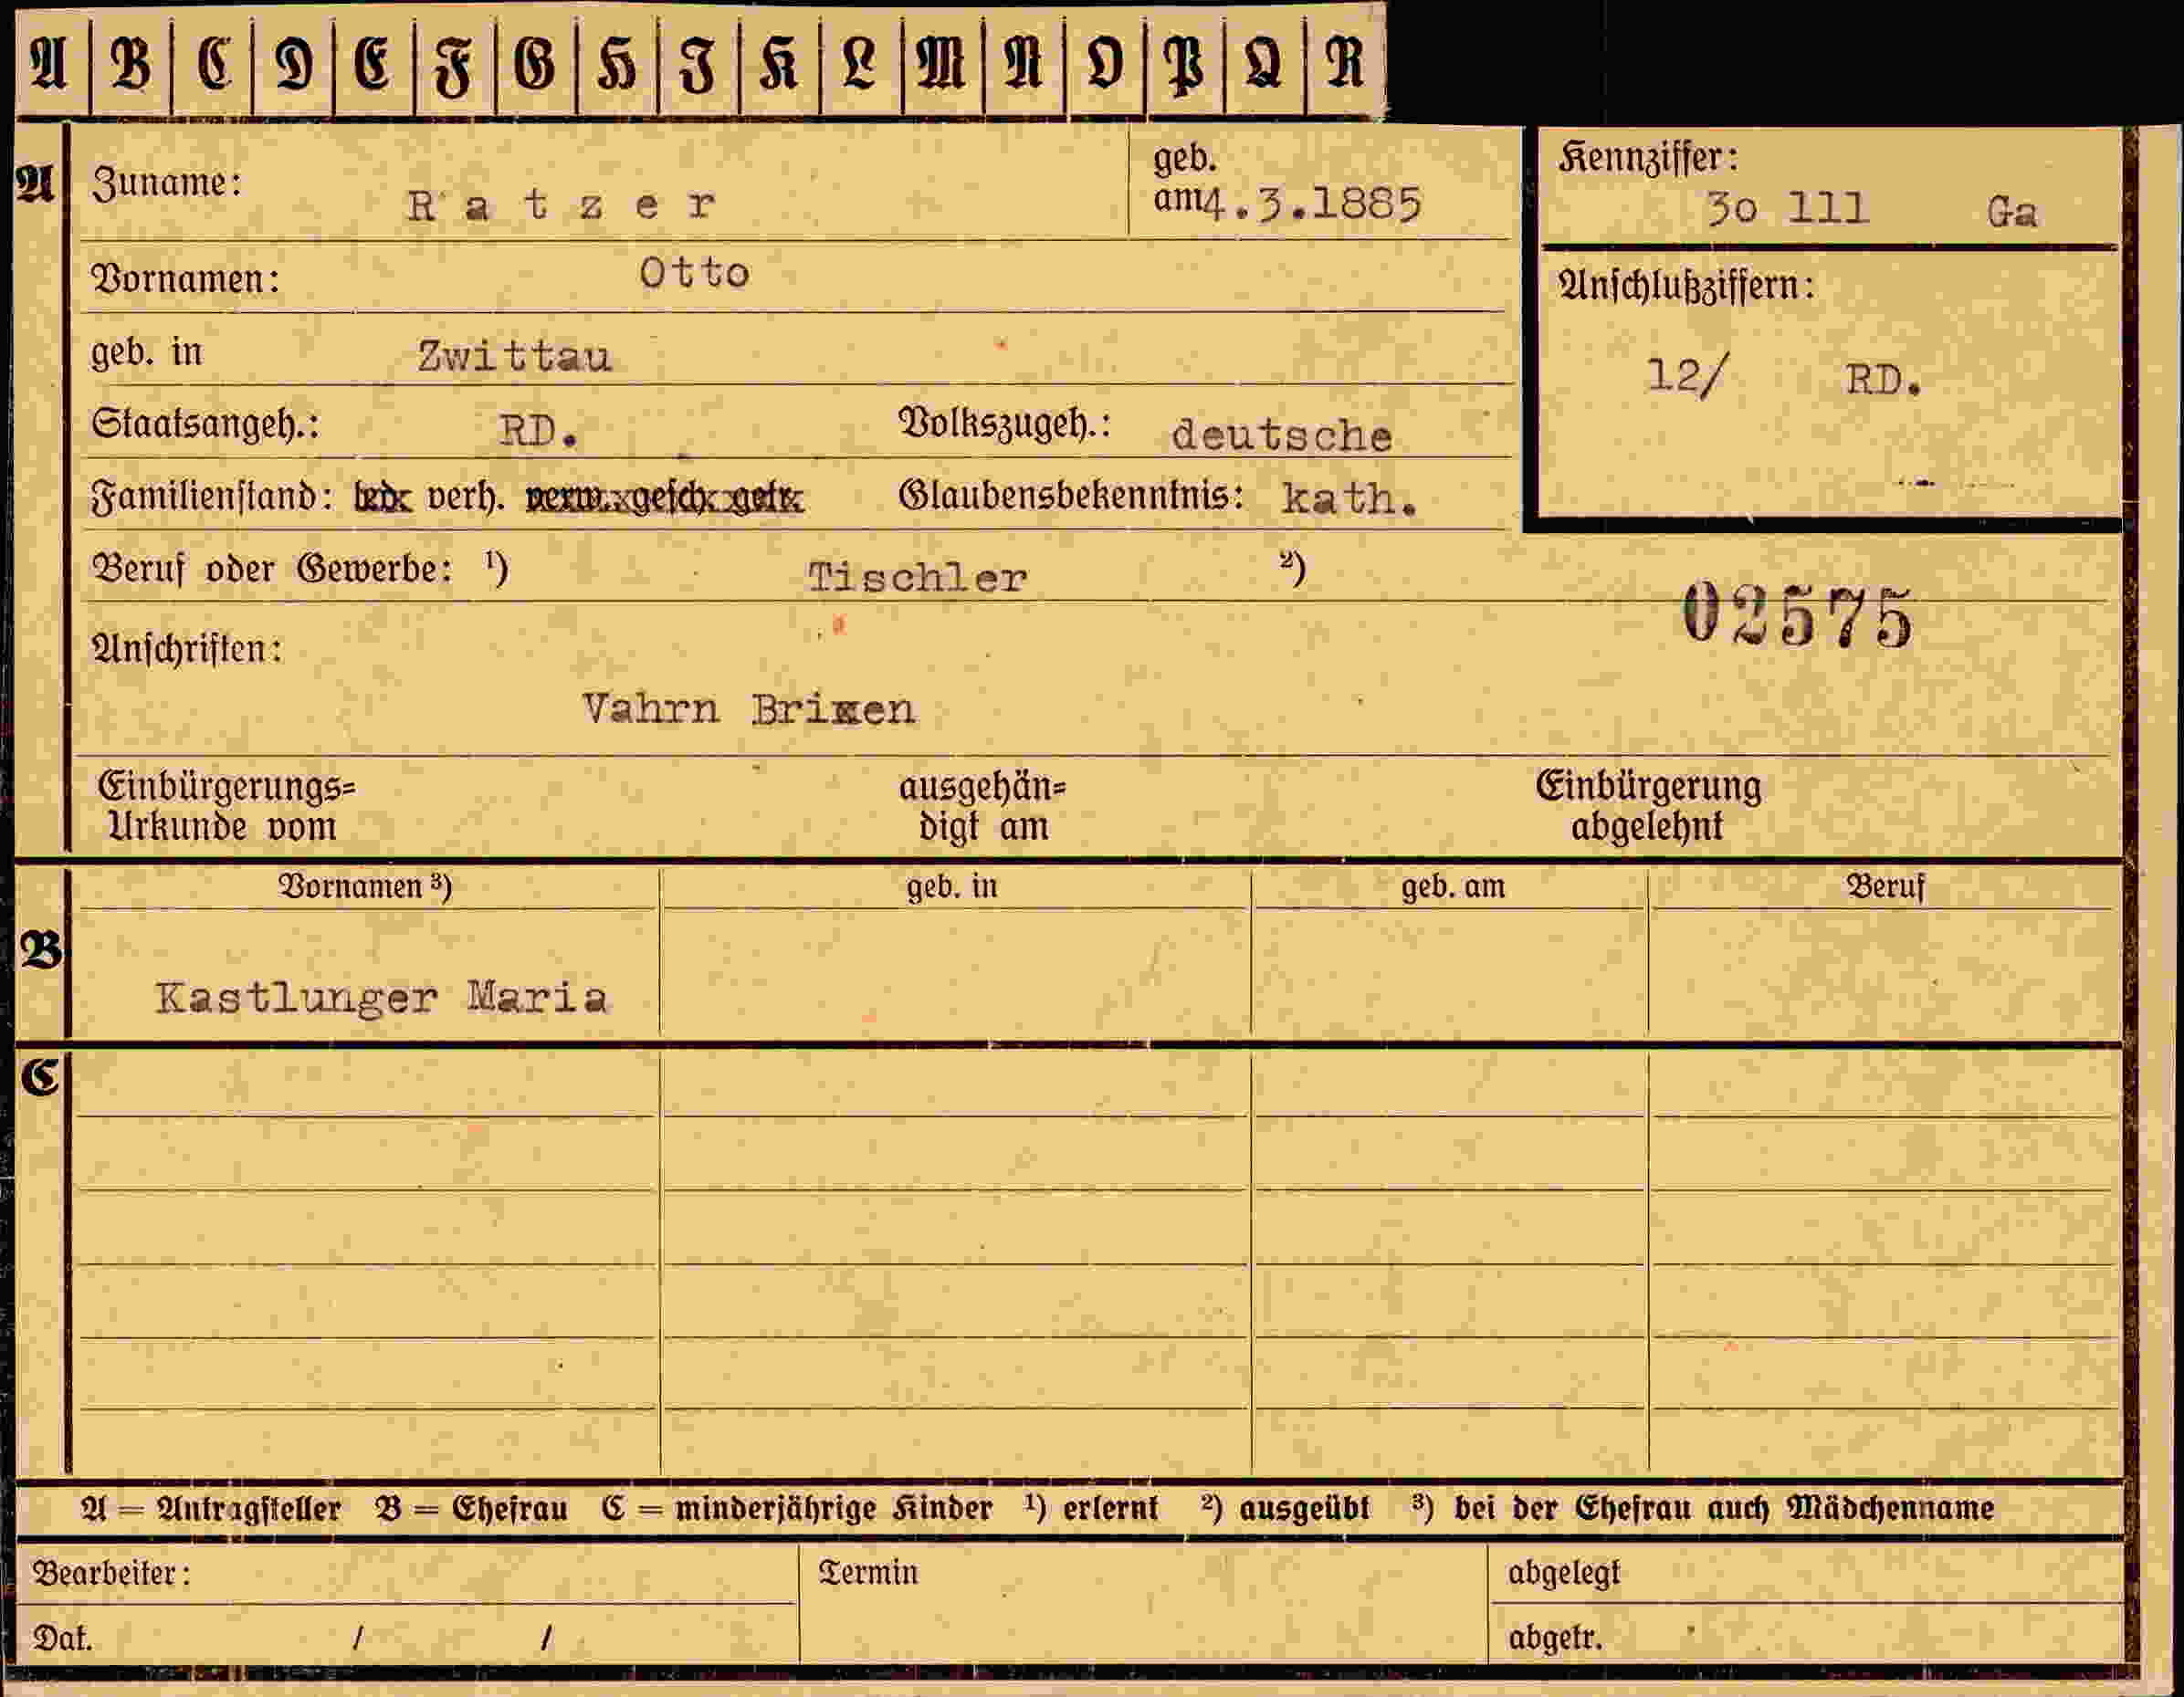 A B C D E F G H I K L M N O P Q R
A Zuname: Ratzer geb. am 4.3.1885
Kennziffer: 3o 111 Ga
Vornamen: Otto
Anschlußziffern:
geb. in Zwittau
12/ RD.
Staatsangeh.: RD. Volkszugeh.: deutsche
Familienstand: led. verh. verw. gesch. getr. Glaubensbekenntnis: kath.
Beruf oder Gewerbe: ¹) Tischler ²)
02575
Anschriften:
Vahrn Brixen
Einbürgerungs= ausgehän= Einbürgerung
Urkunde vom digt am abgelehnt
Vornamen ³) geb. in geb. am Beruf
B
Kastlunger Maria
C
A = Antragsteller B = Ehefrau C = minderjährige Kinder ¹) erlernt ²) ausgeübt ³) bei der Ehefrau auch Mädchenname
Bearbeiter: Termin abgelegt
Dat. / / abgetr.